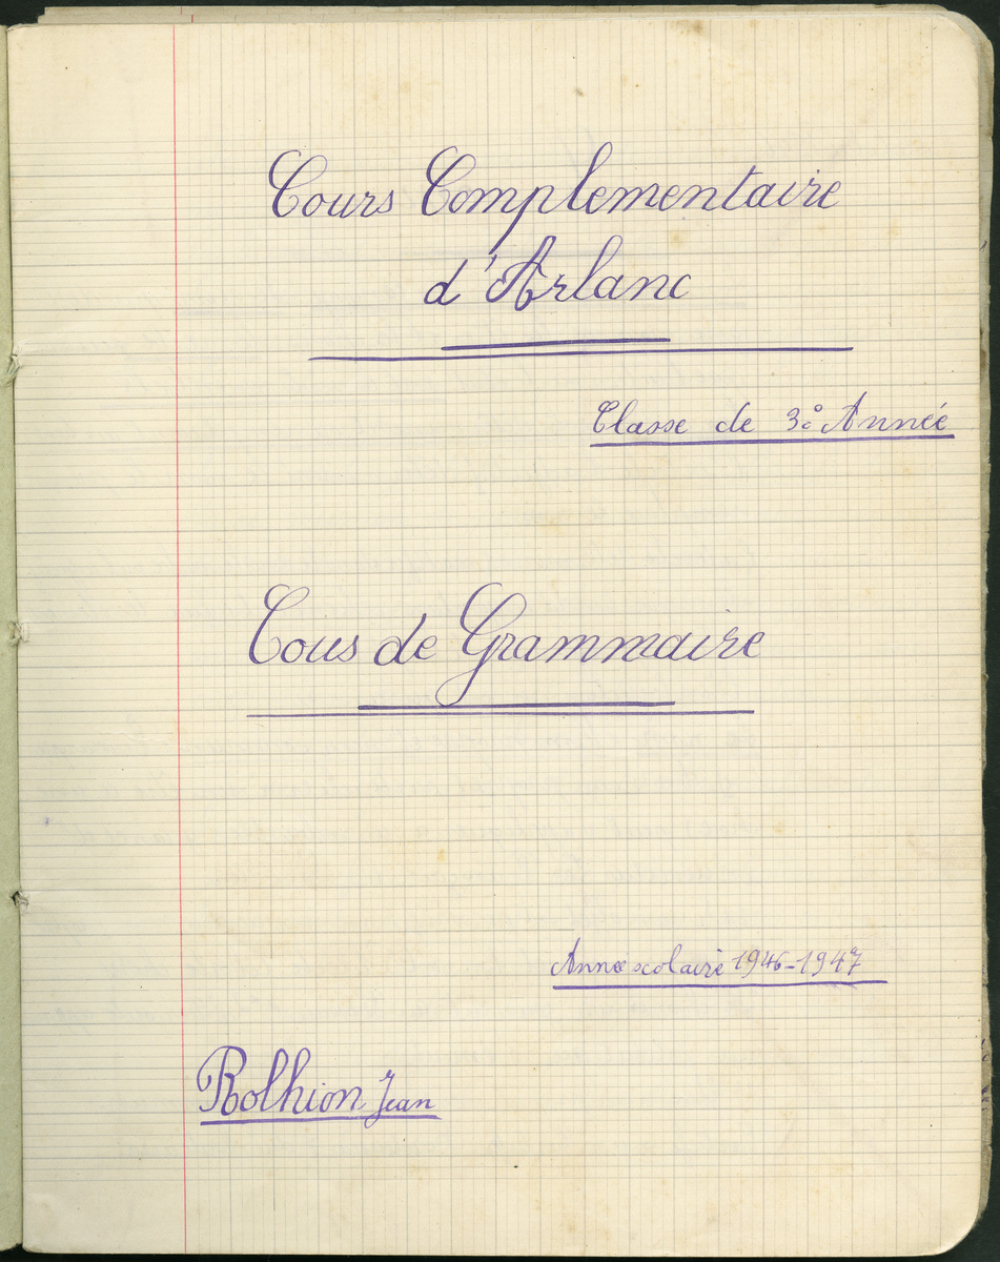 Cours Complementaire
d'Arlanc
Classe de 3e Année
Cous de Grammaire
Année scolaire 1946-1947
Rolhion Jean